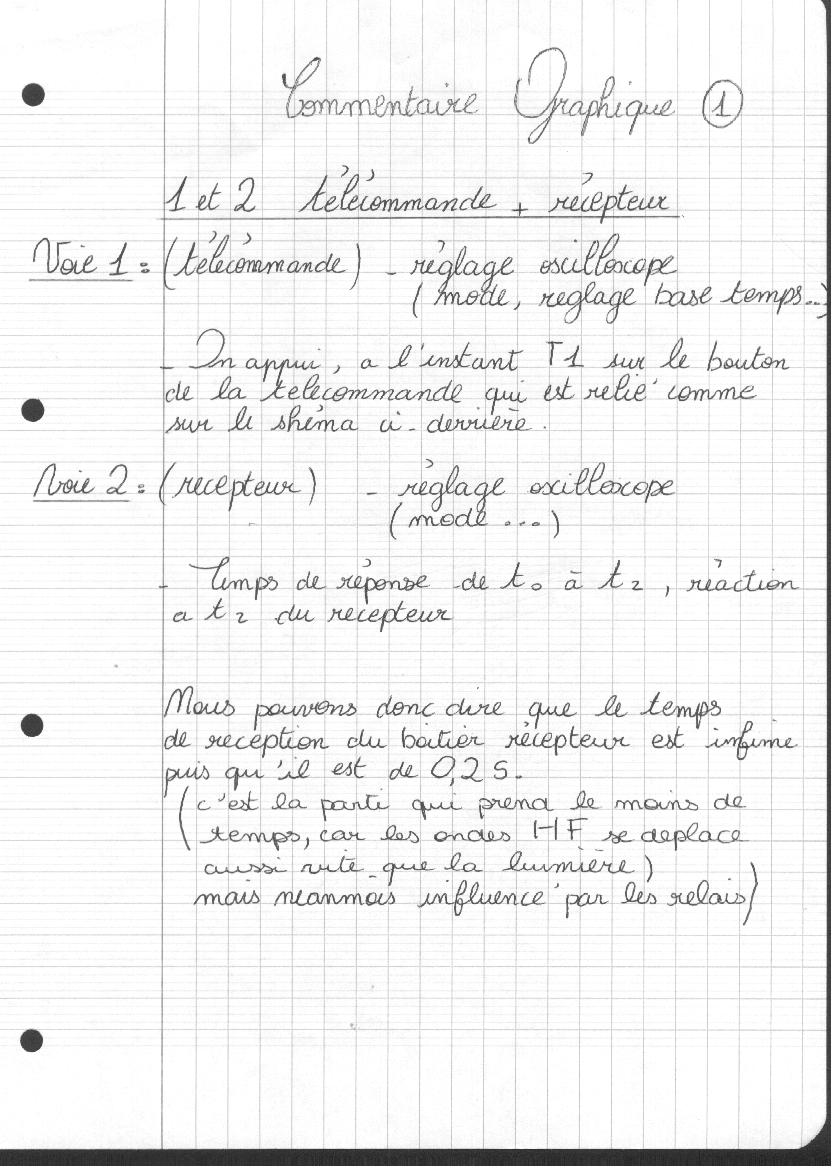 Commentaire Graphique 1
1 et 2 télécommande + récepteur
Voie 1 = (télécommande) - réglage oscilloscope
(mode, reglage base temps..)
- On appui, a l'instant T1 sur le bouton
de la telecommande qui est relié comme
sur le shéma ci-derrière.
Voie 2 = (recepteur) - réglage oscilloscope
(mode ...)
- Temps de réponse de t0 à t2, réaction
a t2 du récepteur
Nous pouvons donc dire que le temps
de reception du boitier récepteur est infime
puis qu'il est de 0,2 s.
(c'est la partie qui prend le moins de
temps, car les ondes HF se deplace
aussi vite que la lumière)
mais néanmois influencé par les relais)